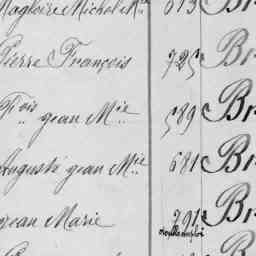 Magloire Michel Mie 613 Br
Pierre François 725 Br
Fois jean Mie 589 Br
Auguste jean Mie 681 Br
jean Marie 291 Br